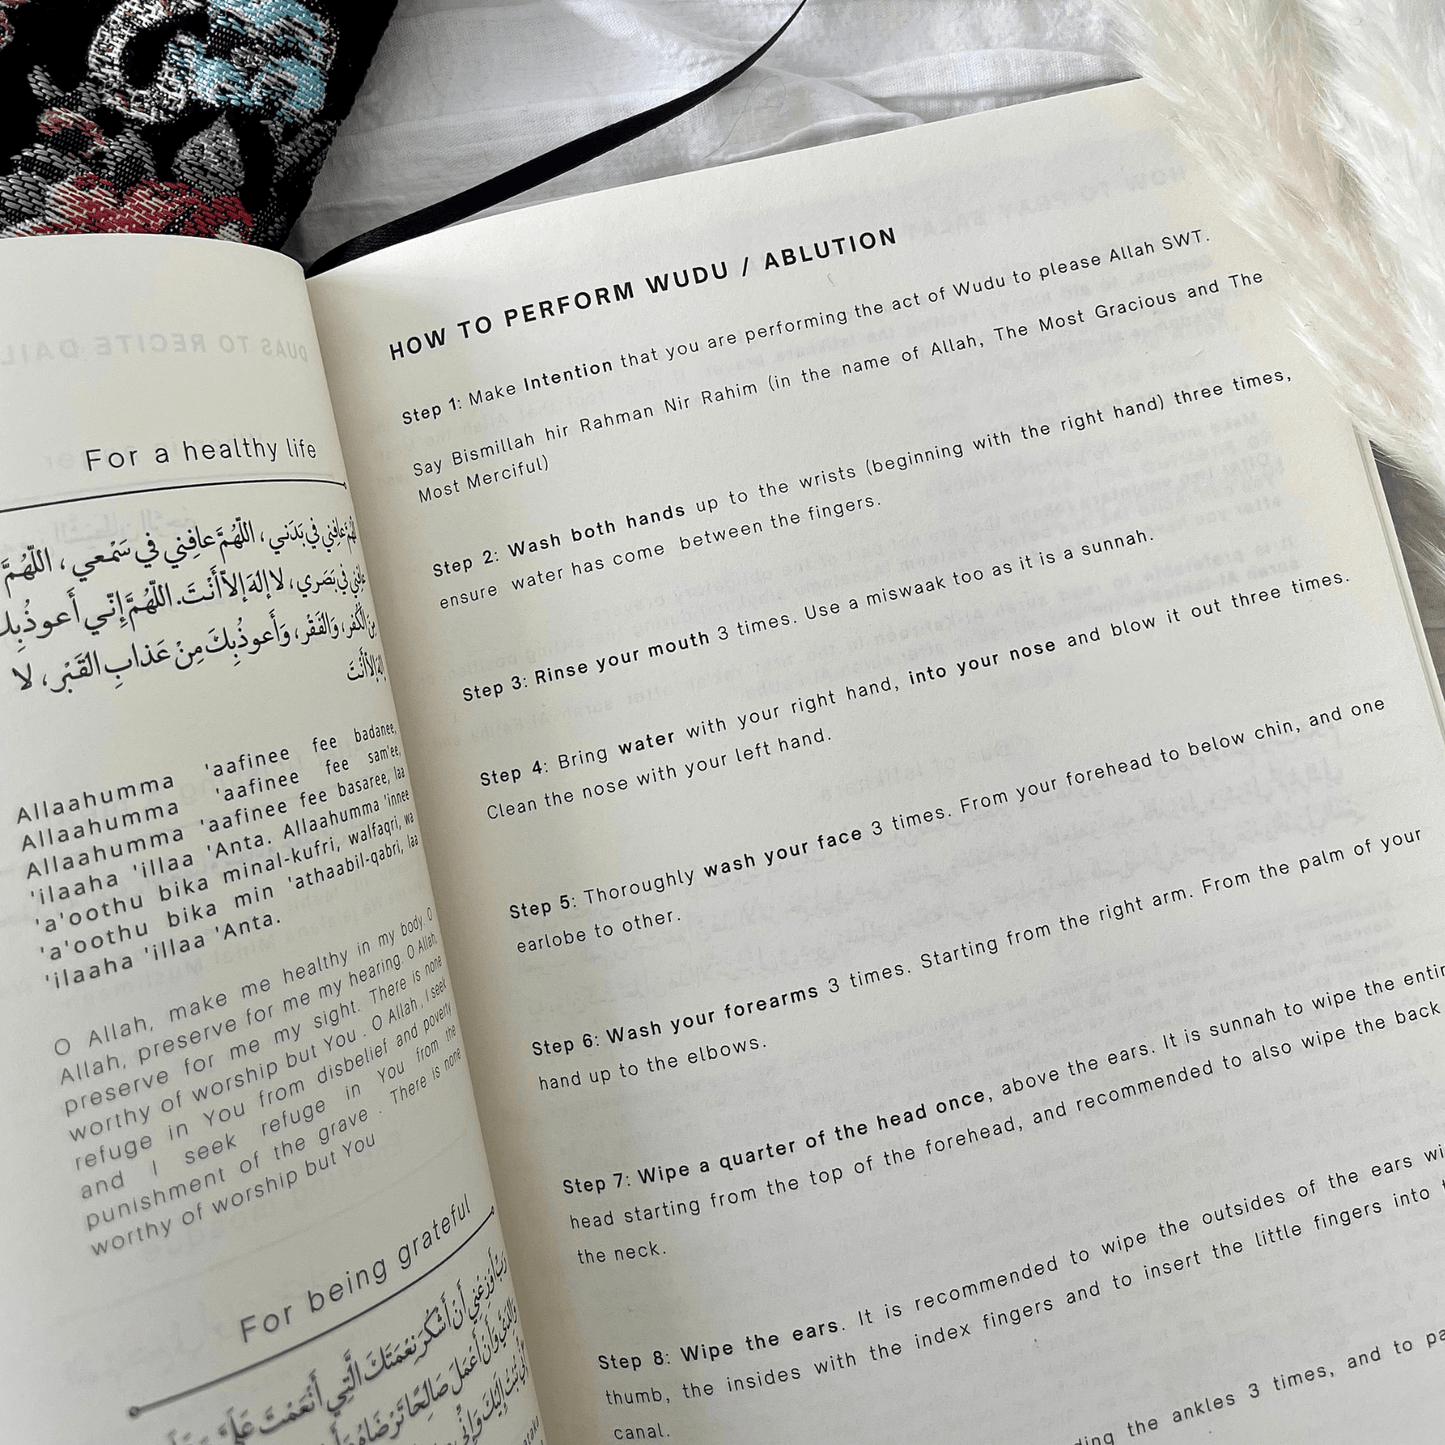 For a healthy life
اللّهُمَّ عافِني في بَدَني ، اللّهُمَّ عافِني في سَمْعي ، اللّهُمَّ
عافِني في بَصَري ، لا إلهَ إلاّ أَنْتَ. اللّهُمَّ إِنّي أَعوذُ بِكَ
مِنَ الْكُفر ، وَالفَقْر ، وَأَعوذُ بِكَ مِنْ عَذابِ القَبْر ، لا
إلهَ إلاّ أَنْتَ
Allaahumma 'aafinee fee badanee,
Allaahumma 'aafinee fee sam'ee,
Allaahumma 'aafinee fee basaree, laa
'ilaaha 'illaa 'Anta. Allaahumma 'innee
'a'oothu bika minal-kufri, walfaqri, wa
'a'oothu bika min 'athaabil-qabri, laa
'ilaaha 'illaa 'Anta.
O Allah, make me healthy in my body. O
Allah, preserve for me my hearing. O Allah,
preserve for me my sight. There is none
worthy of worship but You . O Allah , I seek
refuge in You from disbelief and poverty
and I seek refuge in You from the
punishment of the grave . There is none
worthy of worship but You
For being grateful
رَبِّ أَوْزِعْنِي أَنْ أَشْكُرَ نِعْمَتَكَ الَّتِي أَنْعَمْتَ عَلَيَّ
وَأَنْ أَعْمَلَ صَالِحًا تَرْضَاهُ
HOW TO PERFORM WUDU / ABLUTION
Step 1: Make Intention that you are performing the act of Wudu to please Allah SWT.
Say Bismillah hir Rahman Nir Rahim (in the name of Allah, The Most Gracious and The
Most Merciful)
Step 2: Wash both hands up to the wrists (beginning with the right hand) three times,
ensure water has come between the fingers.
Step 3: Rinse your mouth 3 times. Use a miswaak too as it is a sunnah.
Step 4: Bring water with your right hand, into your nose and blow it out three times.
Clean the nose with your left hand.
Step 5: Thoroughly wash your face 3 times. From your forehead to below chin, and one
earlobe to other.
Step 6: Wash your forearms 3 times. Starting from the right arm. From the palm of your
hand up to the elbows.
Step 7: Wipe a quarter of the head once, above the ears. It is sunnah to wipe the entir
head starting from the top of the forehead, and recommended to also wipe the back
the neck.
Step 8: Wipe the ears. It is recommended to wipe the outsides of the ears wi
thumb, the insides with the index fingers and to insert the little fingers into
canal.
the ankles 3 times, and to pa